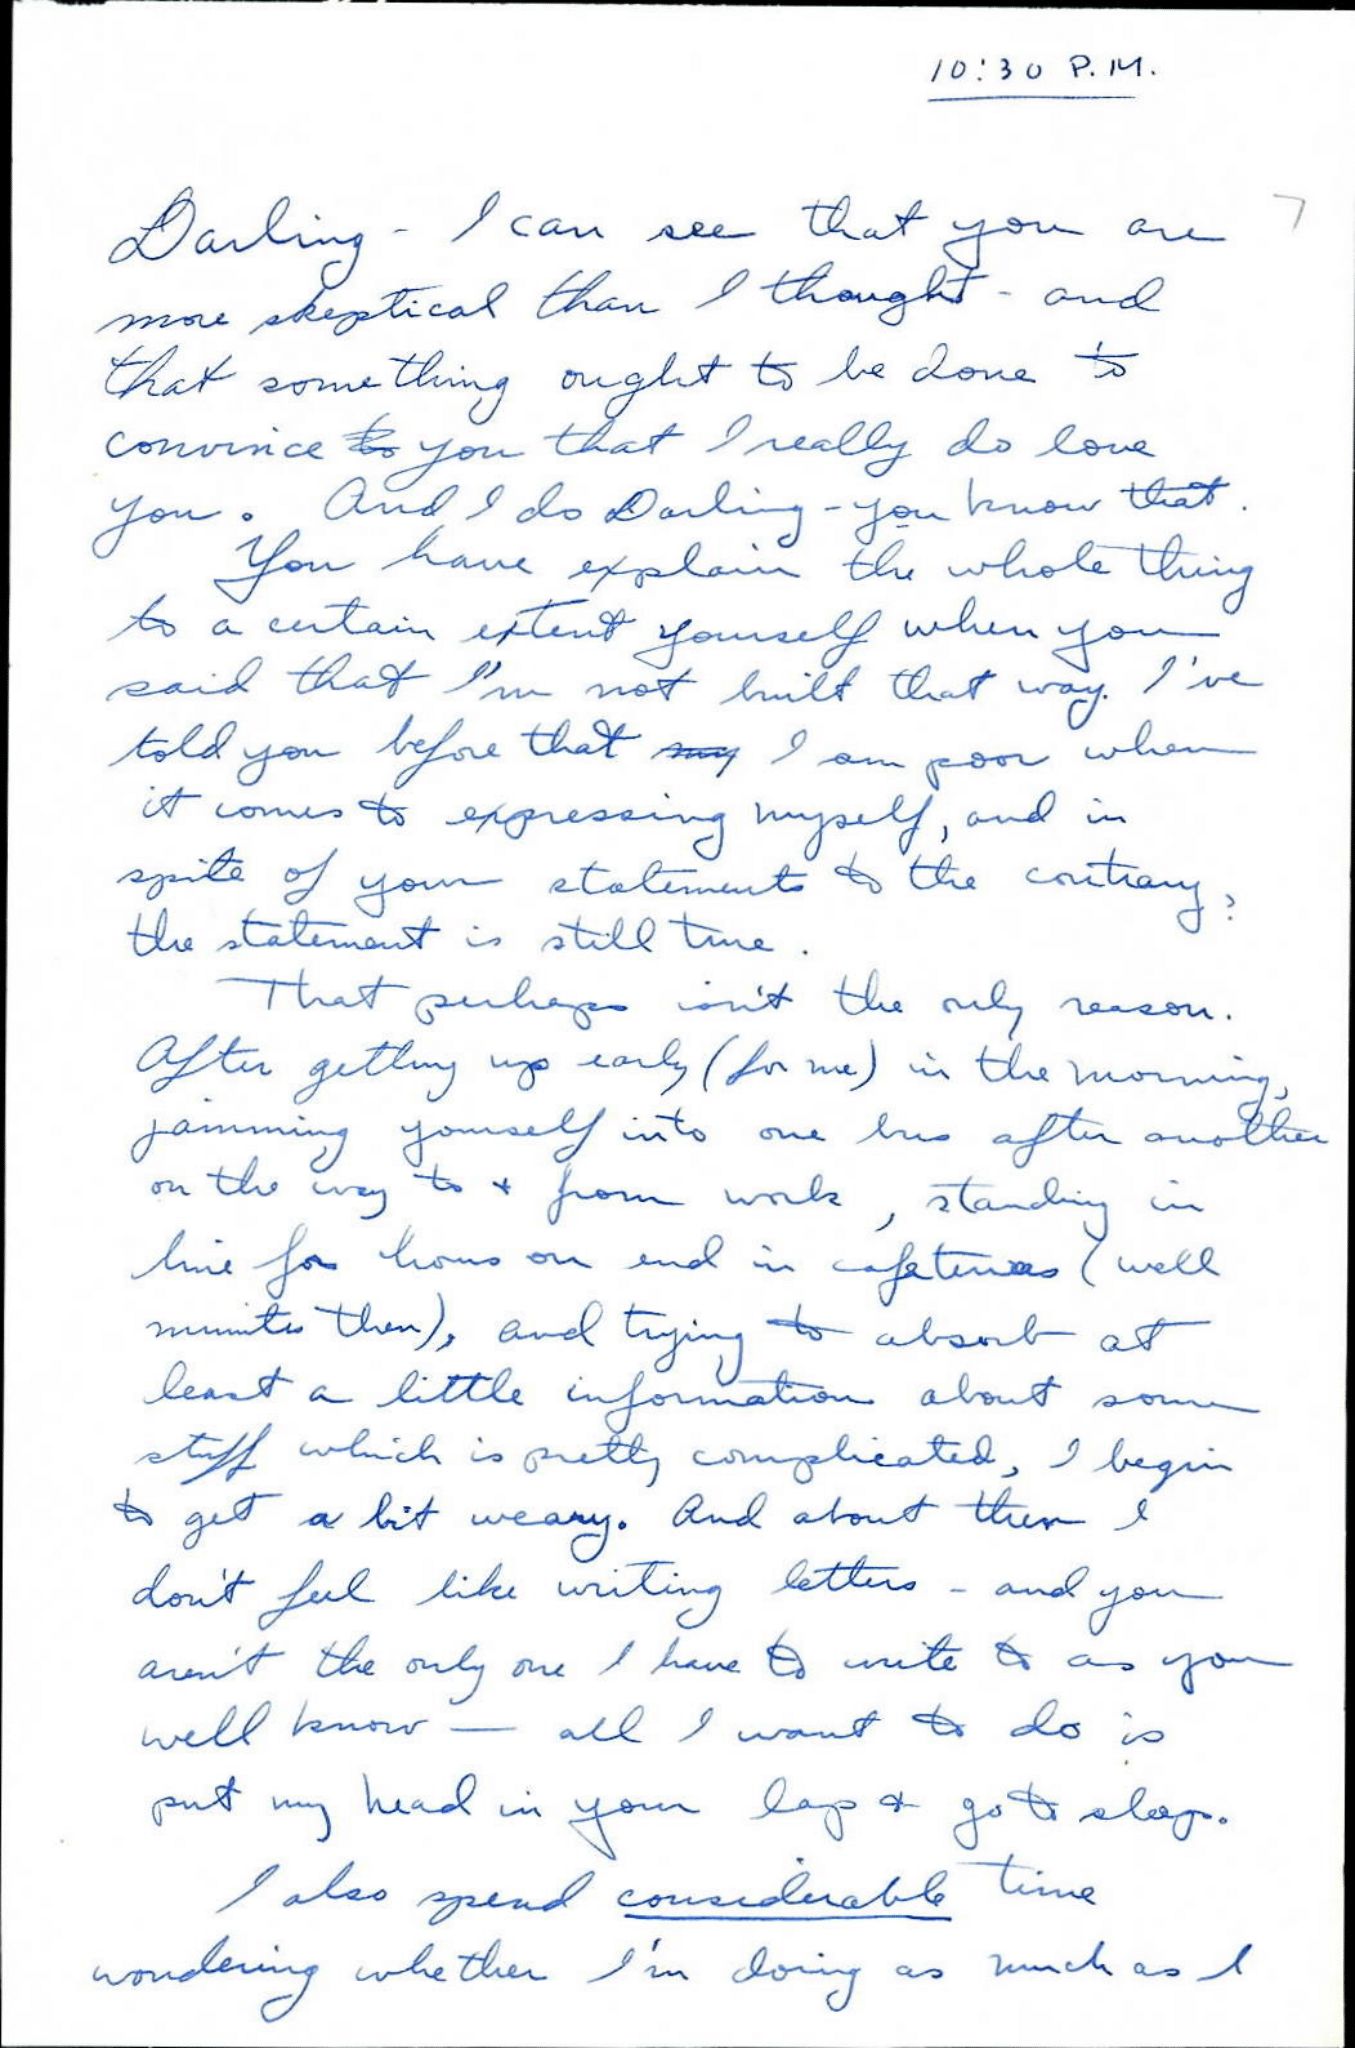 10:30 P.M.
7
Darling - I can see that you are
more skeptical than I thought - and
that something ought to be done to
convince to you that I really do love
you. And I do Darling - you know that.
You have explain the whole thing
to a certain extent yourself when you
said that I'm not built that way. I've
told you before that my I am poor when
it comes to expressing myself, and in
spite of your statements to the contrary,
the statement is still true.
That perhaps isn't the only reason.
After getting up early (for me) in the morning,
jamming yourself into one bus after another
on the way to & from work, standing in
line for hours on end in cafeterias (well
minutes then), and trying to absorb at
least a little information about some
stuff which is pretty complicated, I begin
to get a bit weary. And about then I
don't feel like writing letters - and you
aren't the only one I have to write to as you
well know — all I want to do is
put my head in your lap & go to sleep.
I also spend considerable time
wondering whether I'm doing as much as I